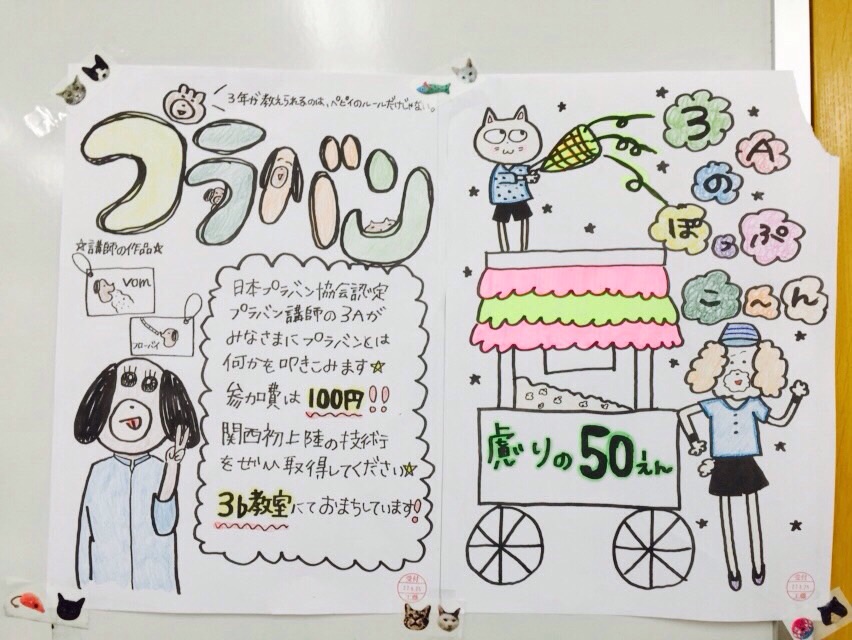 3年が教えられるのは、ペピィのルールだけじゃない。
プラバン
☆講師の作品☆
vom
日本プラバン協会認定
プラバン講師の3Aが
みなさまにプラバンとは
何かを叩きこみます☆
参加費は100円!!
関西初上陸の技術
をぜひ取得してください☆
3b教室にておまちしています!
3A
の
ぽっぷ
こ〜ん
慮りの50えん